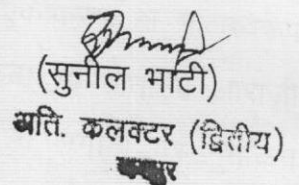 (सुनील भाटी)
अति. कलक्टर (द्वितीय)